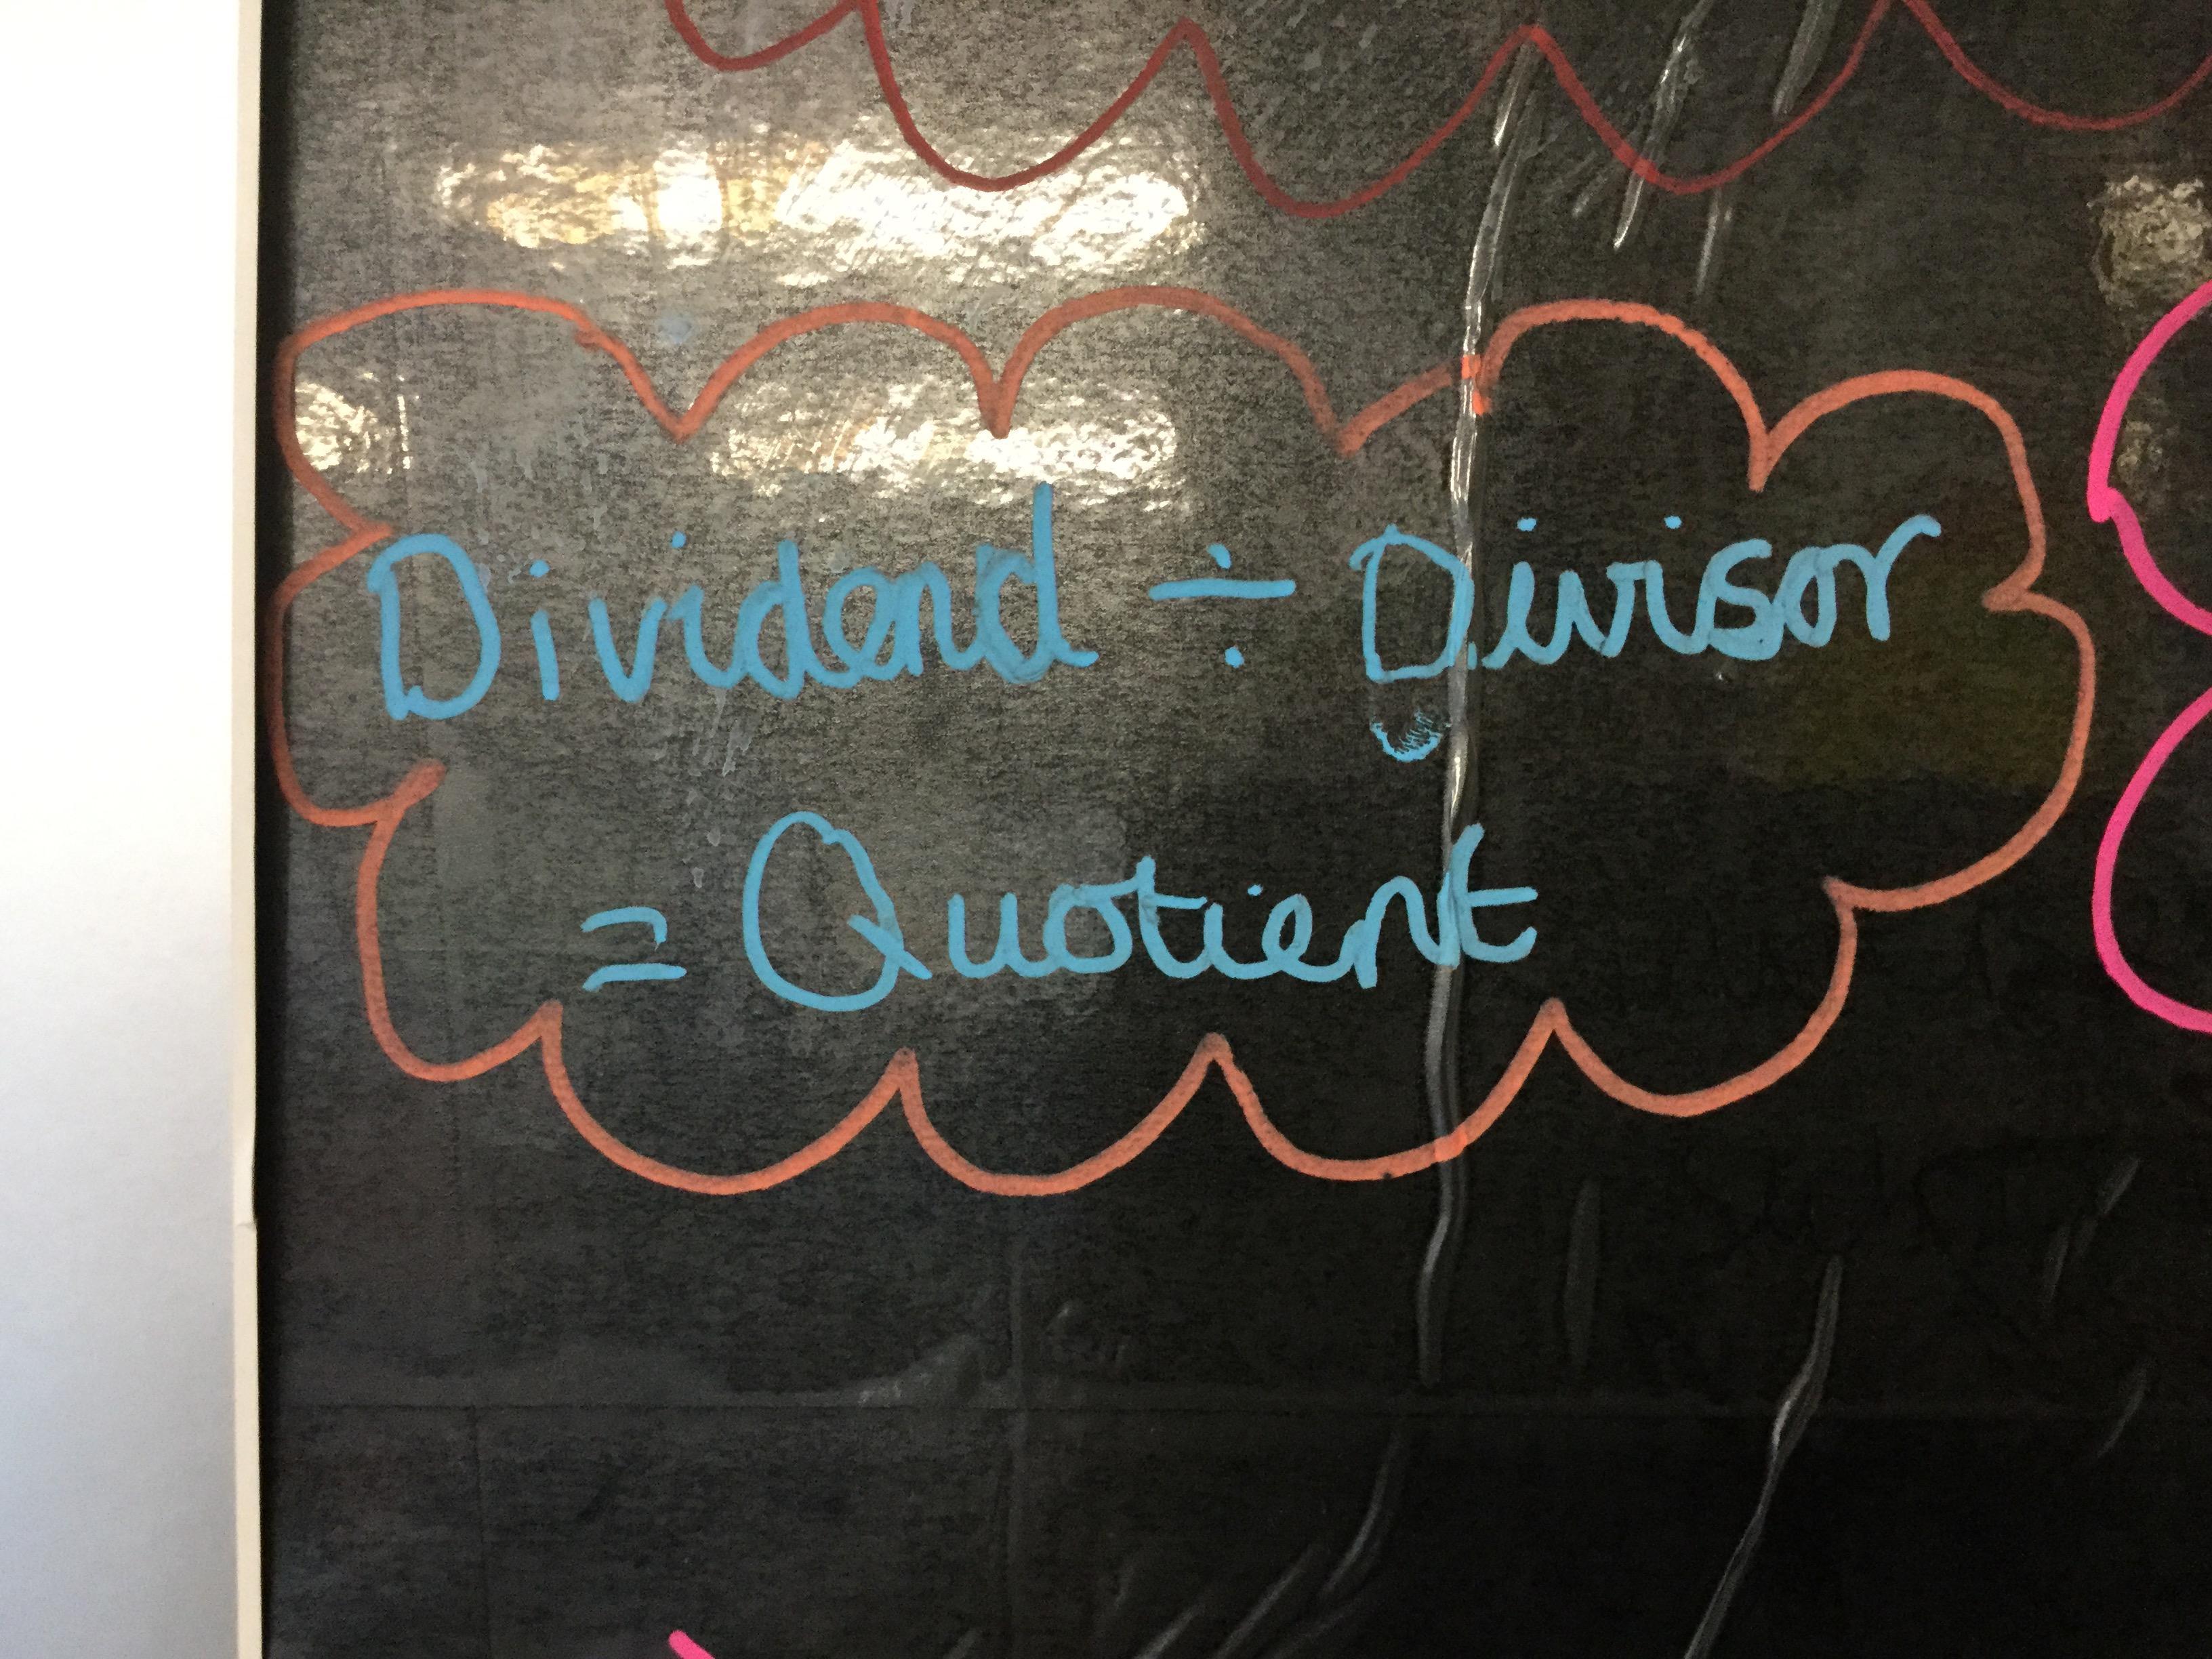 Dividend ÷ Divisor
= Quotient